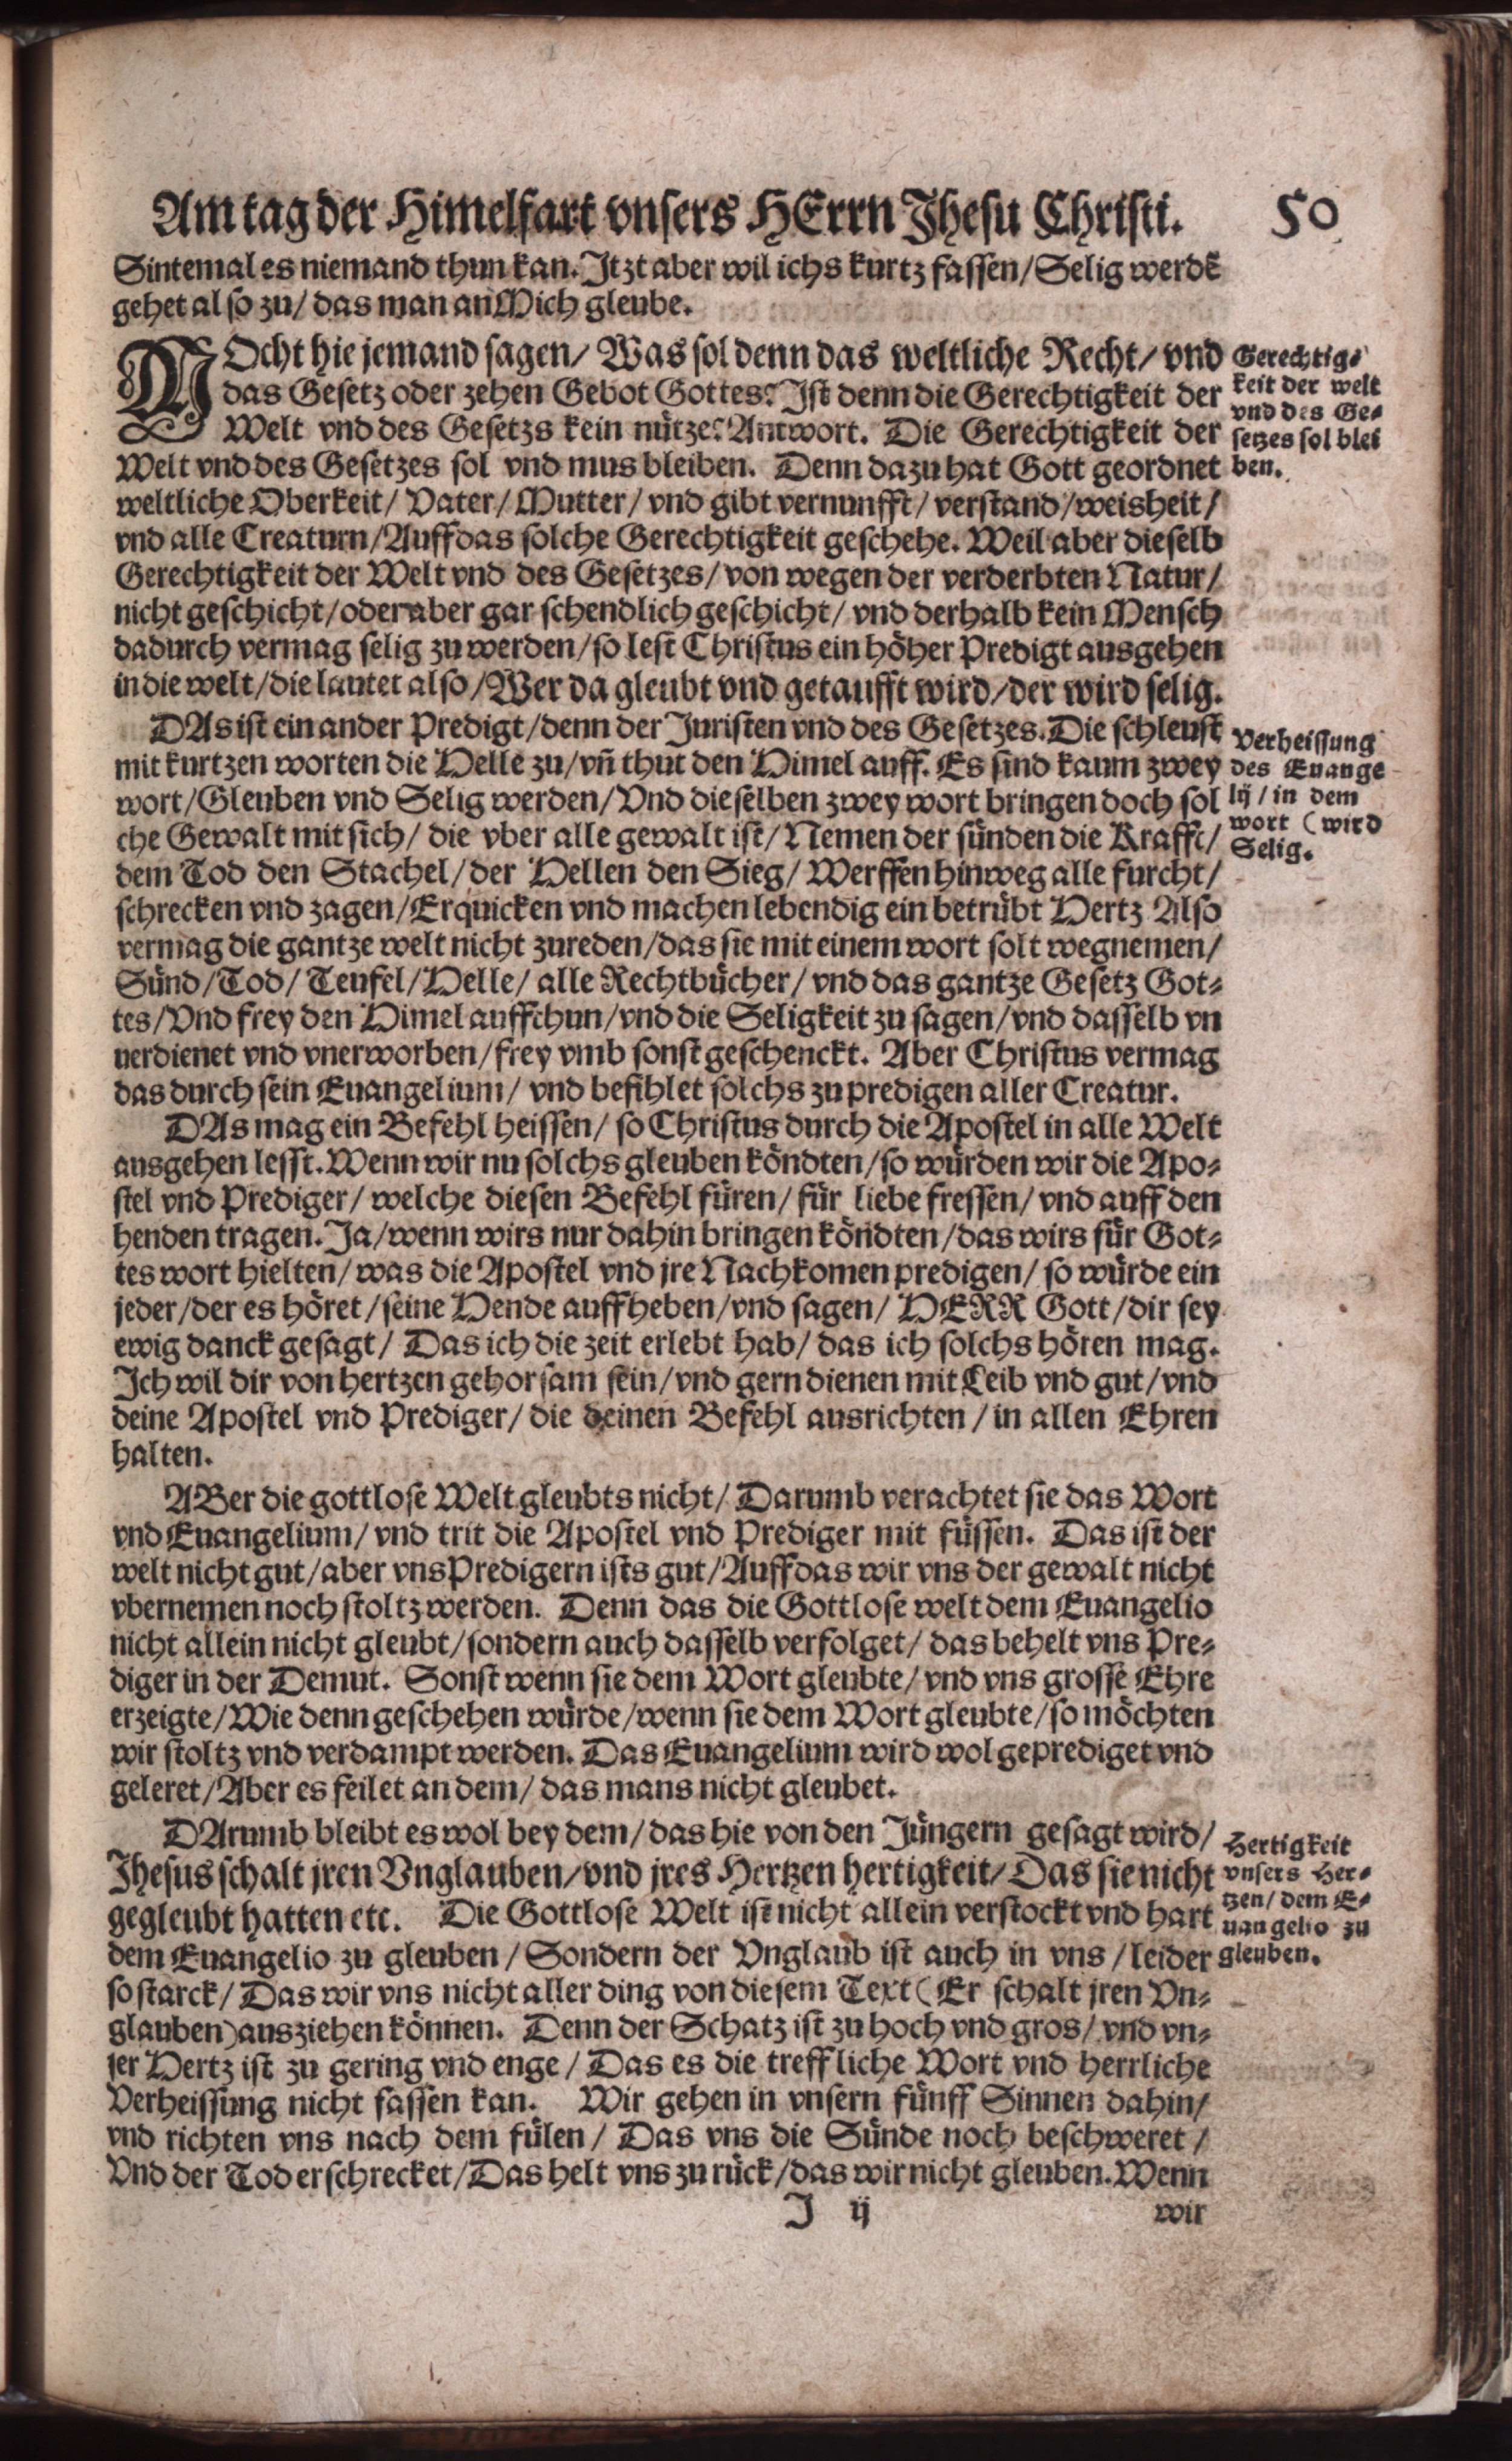 Am tag der Himelfart vnsers HErrn Jhesu Christi. 50
Sintemal es niemand thun kan. Jtzt aber wil ichs kurtz fassen/ Selig werdẽ
gehet also zu/ das man an Mich gleube.
MOcht hie jemand sagen/ Was sol denn das weltliche Recht/ vnd
das Gesetz oder zehen Gebot Gottes? Jst denn die Gerechtigkeit der
Welt vnd des Gesetzs kein nütze? Antwort. Die Gerechtigkeit der
Welt vnd des Gesetzes sol vnd mus bleiben. Denn dazu hat Gott geordnet
weltliche Oberkeit/ Vater/ Mutter/ vnd gibt vernunfft/ verstand/ weisheit/
vnd alle Creaturn/ Auff das solche Gerechtigkeit geschehe. Weil aber dieselb
Gerechtigkeit der Welt vnd des Gesetzes/ von wegen der verderbten Natur/
nicht geschicht/ oder aber gar schendlich geschicht/ vnd derhalb kein Mensch
dadurch vermag selig zu werden/ so lest Christus ein höher Predigt ausgehen
in die welt/ die lautet also/ Wer da gleubt vnd getaufft wird/ der wird selig.
Gerechtig-
keit der welt
vnd des Ge-
setzes sol blei
ben.
DAs ist ein ander Predigt/ denn der Juristen vnd des Gesetzes. Die schleust
mit kurtzen worten die Helle zu/ vñ thut den Himel auff. Es sind kaum zwey
wort/ Gleuben vnd Selig werden/ Vnd dieselben zwey wort bringen doch sol
che Gewalt mit sich/ die vber alle gewalt ist/ Nemen der sünden die Krafft/
dem Tod den Stachel/ der Hellen den Sieg/ Werffen hinweg alle furcht/
schrecken vnd zagen/ Erquicken vnd machen lebendig ein betrübt Hertz Also
vermag die gantze welt nicht zureden/ das sie mit einem wort solt wegnemen/
Sünd/ Tod/ Teufel/ Helle/ alle Rechtbücher/ vnd das gantze Gesetz Got-
tes/ Vnd frey den Himel auffthun/ vnd die Seligkeit zu sagen/ vnd dasselb vn
uerdienet vnd vnerworben/ frey vmb sonst geschenckt. Aber Christus vermag
das durch sein Euangelium/ vnd befihlet solchs zu predigen aller Creatur.
Verheissung
des Euange
lij/ in dem
wort (wird
Selig.
DAs mag ein Befehl heissen/ so Christus durch die Apostel in alle Welt
ausgehen lesst. Wenn wir nu solchs gleuben köndten/ so würden wir die Apo-
stel vnd Prediger/ welche diesen Befehl füren/ für liebe fressen/ vnd auff den
henden tragen. Ja/ wenn wirs nur dahin bringen köndten/ das wirs für Got-
tes wort hielten/ was die Apostel vnd jre Nachkomen predigen/ so würde ein
jeder/ der es höret/ seine Hende auffheben/ vnd sagen/ HERR Gott/ dir sey
ewig danck gesagt/ Das ich die zeit erlebt hab/ das ich solchs hören mag.
Ich wil dir von hertzen gehorsam sein/ vnd gern dienen mit Leib vnd gut/ vnd
deine Apostel vnd Prediger/ die deinen Befehl ausrichten/ in allen Ehren
halten.
ABer die gottlose Welt gleubts nicht/ Darumb verachtet sie das Wort
vnd Euangelium/ vnd trit die Apostel vnd Prediger mit füssen. Das ist der
welt nicht gut/ aber vns Predigern ists gut/ Auff das wir vns der gewalt nicht
vbernemen noch stoltz werden. Denn das die Gottlose welt dem Euangelio
nicht allein nicht gleubt/ sondern auch dasselb verfolget/ das behelt vns Pre-
diger in der Demut. Sonst wenn sie dem Wort gleubte/ vnd vns grosse Ehre
erzeigte/ Wie denn geschehen würde/ wenn sie dem Wort gleubte/ so möchten
wir stoltz vnd verdampt werden. Das Euangelium wird wol geprediget vnd
geleret/ Aber es feilet an dem/ das mans nicht gleubet.
DArumb bleibt es wol bey dem/ das hie von den Jüngern gesagt wird/
Jhesus schalt jren Vnglauben/ vnd jres Hertzen hertigkeit/ Das sie nicht
gegleubt hatten etc. Die Gottlose Welt ist nicht allein verstockt vnd hart
dem Euangelio zu gleuben/ Sondern der Vnglaub ist auch in vns/ leider
so starck/ Das wir vns nicht aller ding von diesem Text (Er schalt jren Vn-
glauben) ausziehen können. Denn der Schatz ist zu hoch vnd gros/ vnd vn-
ser Hertz ist zu gering vnd enge/ Das es die treffliche Wort vnd herrliche
Verheissung nicht fassen kan. Wir gehen in vnsern fünff Sinnen dahin/
vnd richten vns nach dem fülen/ Das vns die Sünde noch beschweret/
Vnd der Tod erschrecket/ Das helt vns zu rück/ das wir nicht gleuben. Wenn
Hertigkeit
vnsers Her-
tzen/ dem E-
uangelio zu
gleuben.
J ij wir